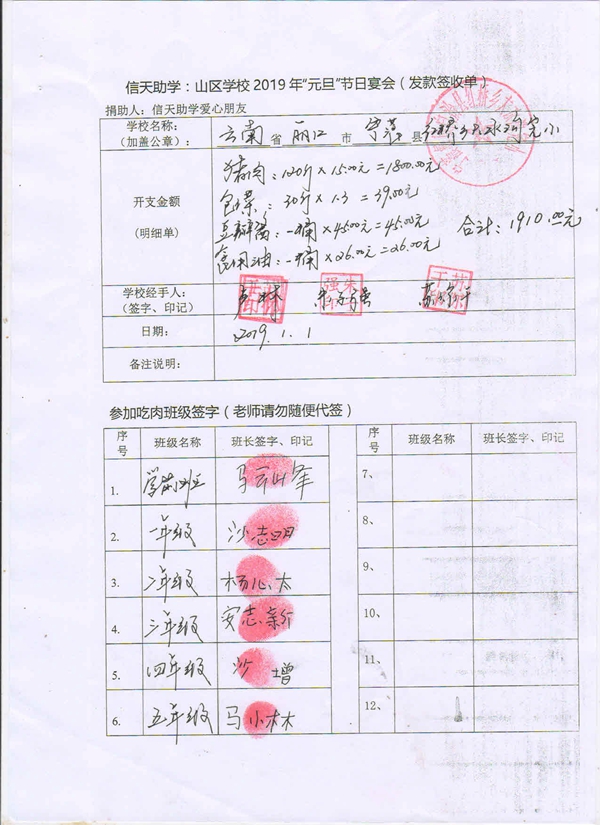 信天助学：山区学校2019年“元旦”节日宴会（发款签收单）
捐助人：信天助学爱心朋友
学校名称：
（加盖公章）：
云南 省 丽江 市 宁蒗 县 红桥乡
开支金额
（明细单）
猪肉：120斤×15.00元=1800.00元
包菜：30斤×1.3=39.00元
豆瓣酱：一桶×45.00元=45.00元
食用油：一桶×26.00元=26.00元
合计：1910.00元
学校经手人：
（签字、印记）
日期：
2019.1.1
备注说明：
参加吃肉班级签字（老师请勿随便代签）
序号 班级名称 班长签字、印记 序号 班级名称 班长签字、印记
1. 学前班 7、
2. 一年级 沙志明 8、
3. 二年级 杨心太 9、
4. 三年级 安志新 10、
5. 四年级 沙增 11、
6. 五年级 马小林 12、